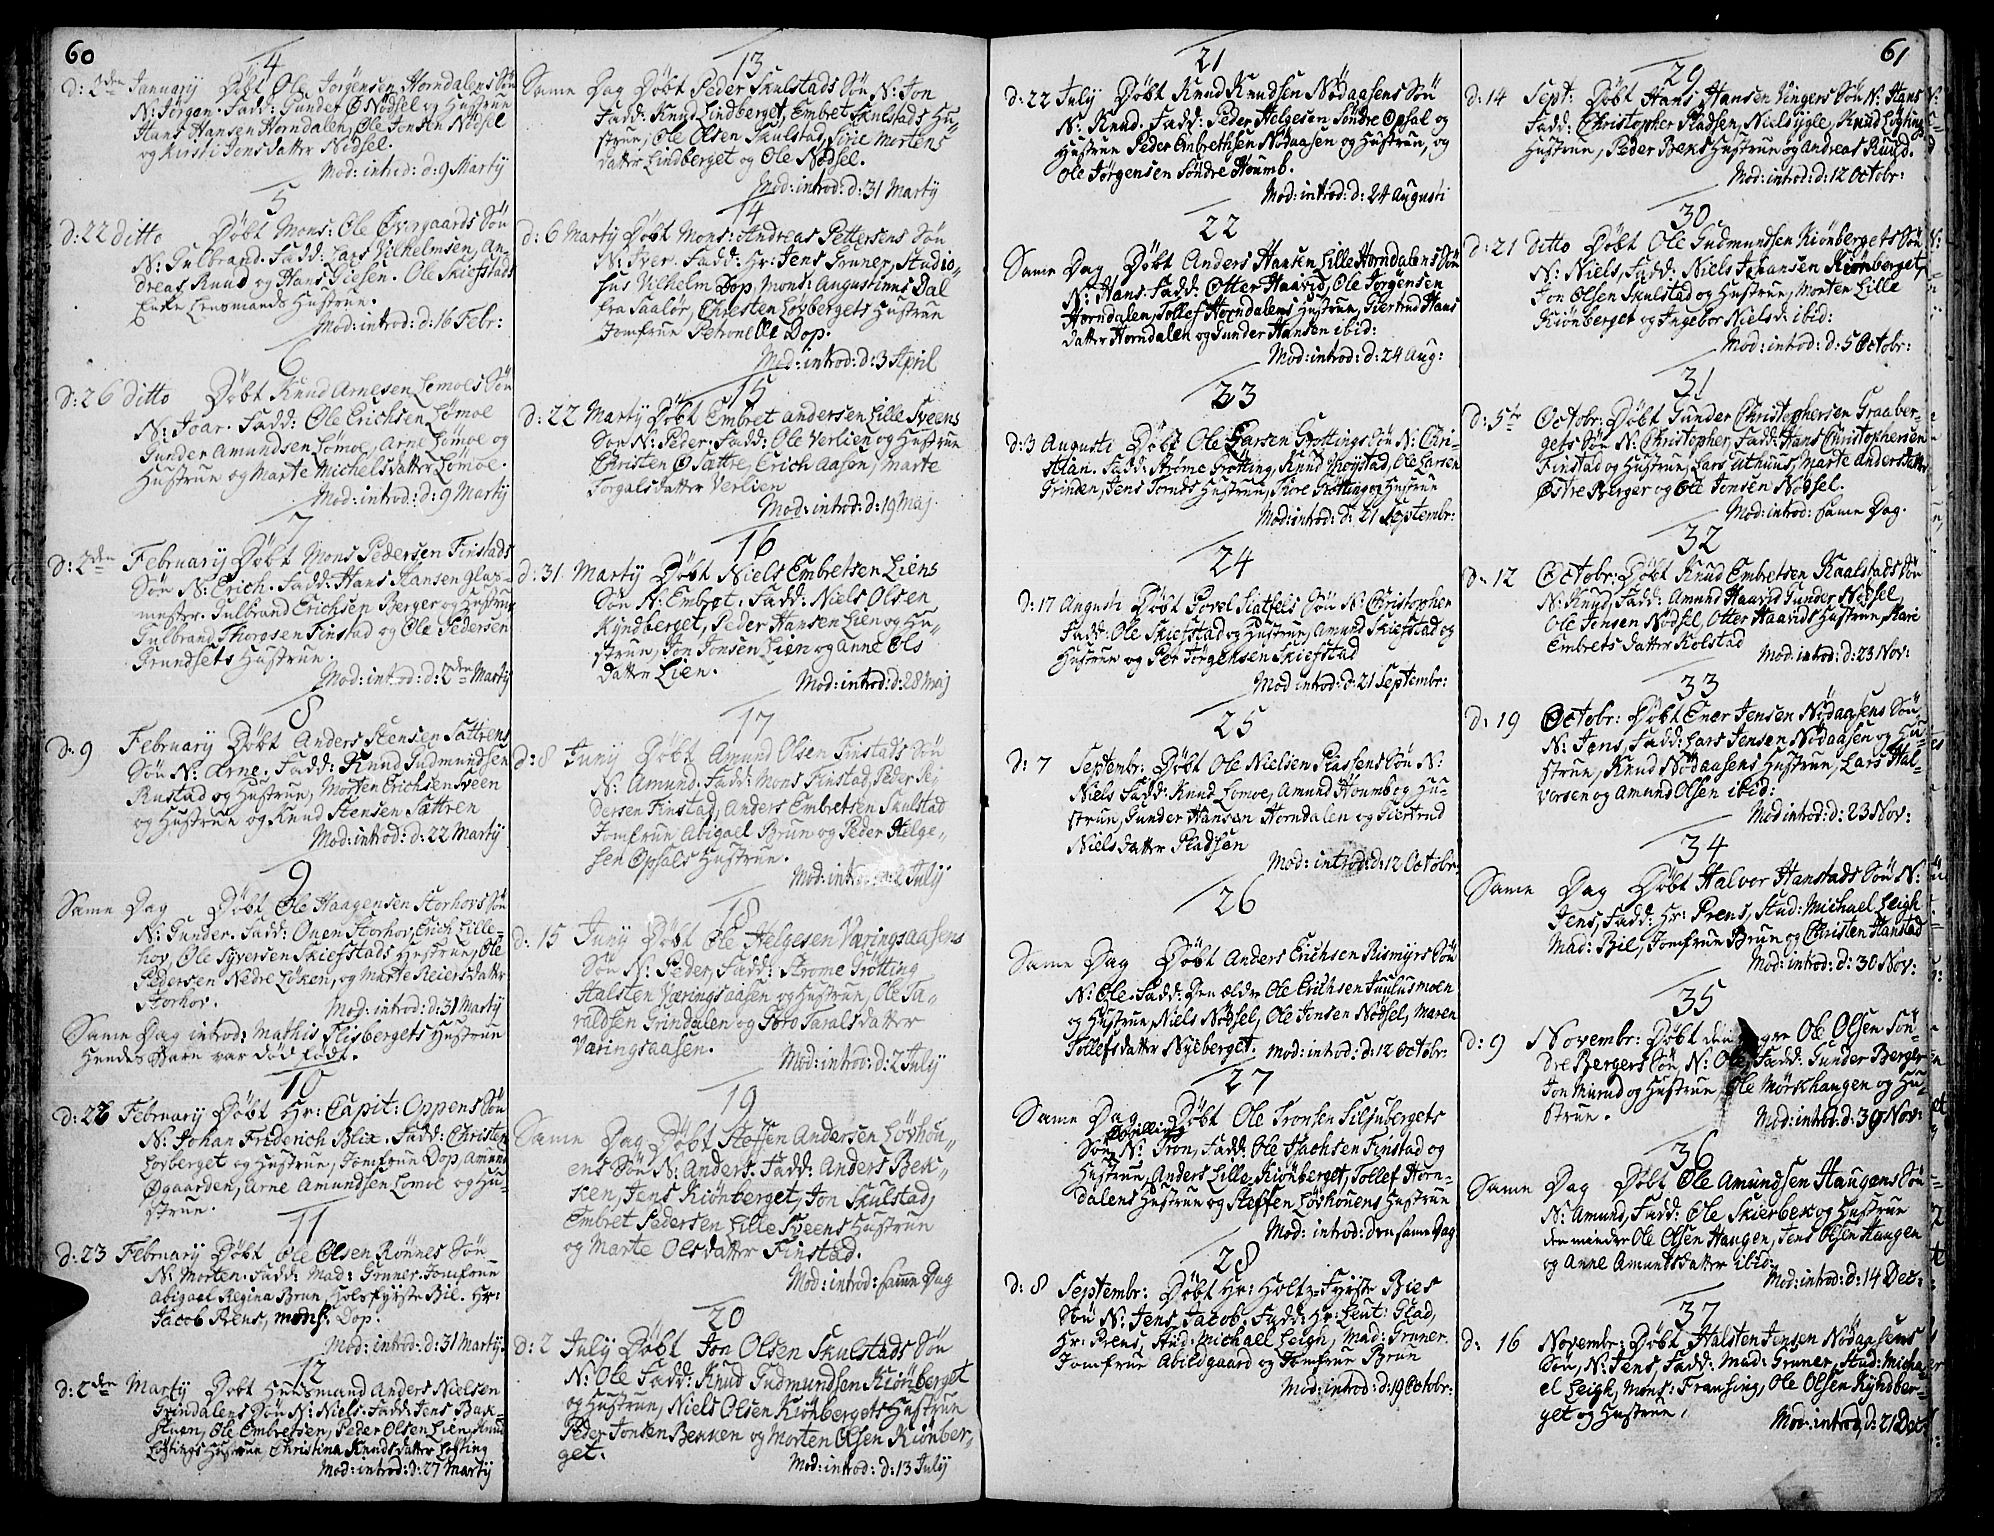 60
4
d: 2den January Döbt Ole Jörgensen Horndalens Sön
N: Jörgan. Fadd: Gunder Ø Nödsel og Hustrue
Hans Hansen Horndalen, Ole Jonsen Nödsel
og Kirsti Jensdatter Nödsel.
Mod: introd: d: 9 Marty
5
d: 22 ditto Döbt Mons: Ole Øvergaards Sön
N: Gulbrand. Fadd: Lars Vilhelmsen, An-
dreas Ruud og Hans Giesen. Ole Skiefstads
Enke Lensmands Hustrue.
Mod: introd: d: 16 Febr:
6
d: 26 ditto Döbt Knud Arnesen Lemoes Sön
N: Joar. Fadd: Ole Erichsen Lömoe
Gunder Amundsen Lömoe, Arne Lömoe og
Hustrue og Marte Michelsdatter Lömoe.
Mod: introd: d: 9 Marty
7
d: 2den February Döbt Mons Pedersen Finstads
Sön N: Erich. Fadd: Hans Hansen glas-
mester. Gulbrand Erichsen Berger og Hustrue
Gulbrand Thorgsen Finstad og Ole Pedersen
Grundsets Hustrue.
Mod: introd: d: 2den Marty
8
d: 9 February Döbt Anders Stensen Sattrens
Sön N: Arne. Fadd: Knud Gudmundsen
Rustad og Hustrue, Morten Erichsen Sveen
og Hustrue og Knud Stensen Sattren
Mod: introd: d: 22 Marty
9
Same Dag Döbt Ole Haagensen Storhovs Sön
N: Gunder. Fadd: Onen Storhov, Erich Lille-
hov, Ole Syversen Skiefstads Hustrue, Ole
Pedersen Nedre Löken, og Marte Reiersdatter
Storhov.
Mod: introd: d: 31 Marty
Same Dag introd: Mathis Flisbergets Hustrue
Hendes Barn var død födt.
10
d: 22 February Döbt Hr: Capit: Oppens Sön
N: Johan Friderich Blix. Fadd: Christen
Lovberget og Hustrue, Jomfrue Dop, Amund
Øgaarden, Arne Amundsen Lomoe og Hu-
strue.
11
d: 23 February Döbt Ole Olsen Rönnes Sön
N: Morten. Fadd: Mad: Gruner. Jomfrue
Abigael Regina Brun, Holsfyrste Bil. Hr:
Jacob Prens, mons: Dop.
Mod: introd: d: 31 Marty.
12
d: 2den Marty Döbt Huusmand Anders Nielsen
Grindalens Sön N: Niels. Fadd: Jens Bak-
stuen, Ole Embretsen, Peder Olsen Lien, Knud
Löftings Hustrue, Christina Knudsdatter Löfting
Mod: introd: d: 27 Marty
13
Same Dag Döbt Peder Skulstads Sön N: Jon
Fadd: Knud Lindberget, Embret Skulstads Hu-
strue, Ole Olsen Skulstad, Sirie Mortens
datter Lindberget og Ole Nödsel.
Mod: introd: d: 31 Marty
14
d: 6 Marty Döbt Mons: Andreas Pettersens Sön
N: Iver. Fadd: Hr: Jens Gruner, Studio-
sus Vilhelm Dop, Mons: Augustinus Dal
fra Saalør, Christen Lovbergets Hustrue
Jomfrue Petronelle Dop.
Mod: introd: d: 3 April
15
d: 22 Marty Döbt Embret Andersen Lille Sveens
Sön N: Peder. Fadd: Ole Verlien og Hustrue
Christen Ø Sattre, Erich Aasen, Marte
Torgalsdatter Verlien
Mod: introd: d: 19 Maj
16
d: 31 Marty Döbt Niels Embretsen Liens
Sön N: Embret. Fadd: Niels Olsen
Kyndberget, Peder Hansen Lien og Hu-
strue, Jon Jonsen Lien og Anne Ols
Datter Lien.
Mod: introd: d: 28 Maj
17
d: 8 Juny Döbt Amund Olsen Finstads Sön
N: Amund. Fadd: Mons Finstad, Peder Pe-
dersen Finstad, Anders Embretsen Skulstad
Jomfrue Abigael Brun og Peder Helge-
sen Opsals Hustrue.
Mod: introd: July
18
d: 15 Juny Döbt Ole Helgesen Væringsaasens
Sön N: Peder, Fadd: Strome Grötting
Halsten Væringsaasen og Hustrue, Ole Ta-
raldsen Grindalen og Goro Taralsdatter
Væringsaasen.
Mod: introd: d: 2 July
19
Same Dag Döbt Steffen Andersen Lövhou-
ens Sön N: Anders. Fadd: Anders Bek-
ken, Jens Kiönberget, Jon Skulstad,
Embret Pedersen Lille Sveens Hustrue
og Marte Olsdatter Finstad.
Mod: introd: same Dag
20
d: 2 July Döbt Jon Olsen Skulstads Sön
N: Ole Fadd: Knud Gudmundsen Kiönberget
og Hustrue, Niels Olsen Kiönbergets Hustrue
Peder Jonsen Bekken og Morten Olsen Kiönber-
get.
Mod: introd: d: 13 July
21
d: 22 July Döbt Knud Knudsen Nödaasens Sön
N: Knud. Fadd: Peder Helgesen Söndre Opsal og
Hustrue Peder Enbrethsen Nödaasen og Hustrue, og
Ole Jörgensen Söndre Houmb.
Mod: introd: d: 24 Augusti
22
Same Dag Döbt Anders Hansen Lille Horndalens Sön
N: Hans. Fadd: Otter Haavid, Ole Jörgensen
Horndalen, Tollef Horndalens Hustrue, Giertrud Hans
datter Horndalen og Gunder Hansen ibid:
Mod: introd: d: 24 Aug:
23
d: 3 Augusti Döbt Ole Larsen Grottings Sön N: Chri-
stian. Fadd: Strøme Grötting, Knud Thoystad, Ole Larsen
Grinden, Jens Hustrue, Tore Grötting og Hustrue
Mod: introd: d: 21 Septembr:
24
d: 17 Augusti Döbt Povel Slatfels Sön N: Christopher
Fadd: Ole Skiefstad og Hustrue, Amund Skiefstad og
Hustrue og Per Jörgensen Skiefstad
Mod introd: d: 21 Septembr:
25
d: 7 Septembr: Döbt Ole Nielsen Plassens Sön N:
Niels Fadd: Knud Lomoe, Amund Houmb og Hu-
strue, Gunder Hansen Horndalen og Giertrud
Nielsdatter Pladsen
Mod: introd: d: 12 Octobr:
26
Same Dag Döbt Anders Erichsen Rismyrs Sön
N: Ole. Fadd: Den ældre Ole Erichsen Juulusmoen
og Hustrue, Niels Nödsel, Ole Jensen Nödsel, Maren
Tollefsdatter Nyeberget. Mod: introd: d: 12 Octobr:
27
Same Dag Döbt Ole Tronsen Siljubergets
Sön Tvilling N: Tron, Fadd: Ole Isachsen Finstad og
Hustrue, Anders Lille Kiönberget, Tollef Horn-
dalens Hustrue og Steffen Lövhouens Hustrue
Mod: introd: den same Dag
28
d: 8 Septembr: Döbt Hr: Holtz-Fyrste Bies
Sön N: Jens Jacob. Fadd: Hr: Leut: Glad,
Hr: Prens, Stud: Michael Leigh, Mad: Gruner
Jomfrue Abildgaard og Jomfrue Brun
Mod: introd: d: 19 Octobr:
61
29
d: 14 Sept: Döbt Hans Hansen Vingers Sön N: Hans
Fadd: Christopher Pladsen, Niels Ygle, Knud Löftings
Hustrue, Peder Beks Hustrue og Andreas Ruud.
Mod: introd: d: 12 Octobr:
30
d: 21 ditto Döbt Ole Gudmundsen Kiönbergets Sön
N: Niels, Fadd: Niels Johansen Kiönberget,
Jon Olsen Skulstad og Hustrue, Morten Lille
Kiönberget og Ingebor Nielsd: ibid:
Mod: introd: d: 5 Octobr:
31
d: 5te Octobr: Döbt Gunder Christophersen Graaber-
gets Sön N: Christopher, Fadd: Hans Christophersen
Finstad og Hustrue, Lars Uthuus, Marte Andersdatter
Østre Berger og Ole Jonsen Nödsel.
Mod: introd: same Dag.
32
d: 12 Octobr: Döbt Knud Embretsen Kaalstads Sön
N: Knud, Fadd: Amund Haavid Gunder Nödsel,
Ole Jensen Nödsel, Otter Haavids Hustrue, Kari
Embrets datter Kolstad
Mod: introd: d: 23 Nov:
33
d: 19 Octobr: Döbt Ener Jensen Nödaasens Sön
N: Jens, Fadd: Lars Jensen Nödaasen og Hu-
strue, Knud Nödaasens Hustrue, Lars Hal-
vorsen og Amund Olsen ibid:
Mod introd: d: 23 Nov:
34
Same Dag Döbt Halvor Hanstads Sön N:
Jens, Fadd: Hr: Prens, Stud: Michael Leigh
Mad: Bil, Jomfrue Brun og Christen Hanstad
Mod: introd: d: 30 Nov:
35
d: 9 Novembr: Döbt den Ole Olsen Sön-
dre Bergers Sön N: Ole, Fadd: Gunder Berger
Jon Murud og Hustrue, Ole Mörkhaugen og Hu-
strue.
Mod: introd: d: 30 Nov:
36
Same Dag Döbt Ole Amundsen Haugens Sön
N: Amund, Fadd: Ole Skierbek og Hustrue
den mindre Ole Olsen Haugen, Jens Olsen Haugen
og Anne Amundsdatter ibid:
Mod: introd: d: 14 Dec:
37
d: 16 Novembr: Döbt Halsten Jensen Nödaasens
Sön, N: Jens, Fadd: Mad: Gruner, Stud: Micha-
el Leigh, Mons: Fransing, Ole Olsen Kyndber-
get og Hustrue.
Mod: introd: d: 21 Dec